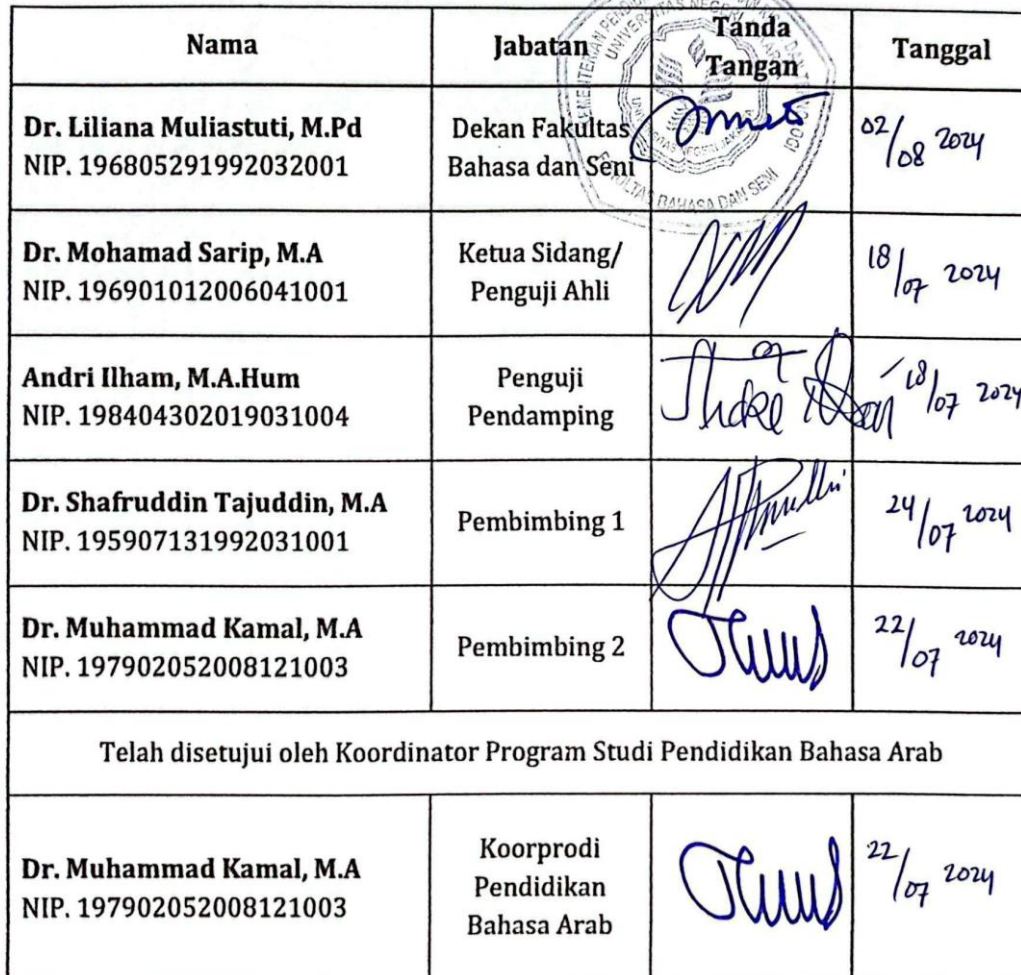 Nama Jabatan Tanda Tangan Tanggal
Dr. Liliana Muliastuti, M.Pd
NIP. 196805291992032001
Dekan Fakultas
Bahasa dan Seni
02/08 2024
Dr. Mohamad Sarip, M.A
NIP. 196901012006041001
Ketua Sidang/
Penguji Ahli
18/07 2024
Andri Ilham, M.A.Hum
NIP. 198404302019031004
Penguji
Pendamping
18/07 2024
Dr. Shafruddin Tajuddin, M.A
NIP. 195907131992031001
Pembimbing 1
24/07 2024
Dr. Muhammad Kamal, M.A
NIP. 197902052008121003
Pembimbing 2
22/07 2024
Telah disetujui oleh Koordinator Program Studi Pendidikan Bahasa Arab
Dr. Muhammad Kamal, M.A
NIP. 197902052008121003
Koorprodi
Pendidikan
Bahasa Arab
22/07 2024
UNIVERSITAS NEGERI JAKARTA
FAKULTAS BAHASA DAN SENI